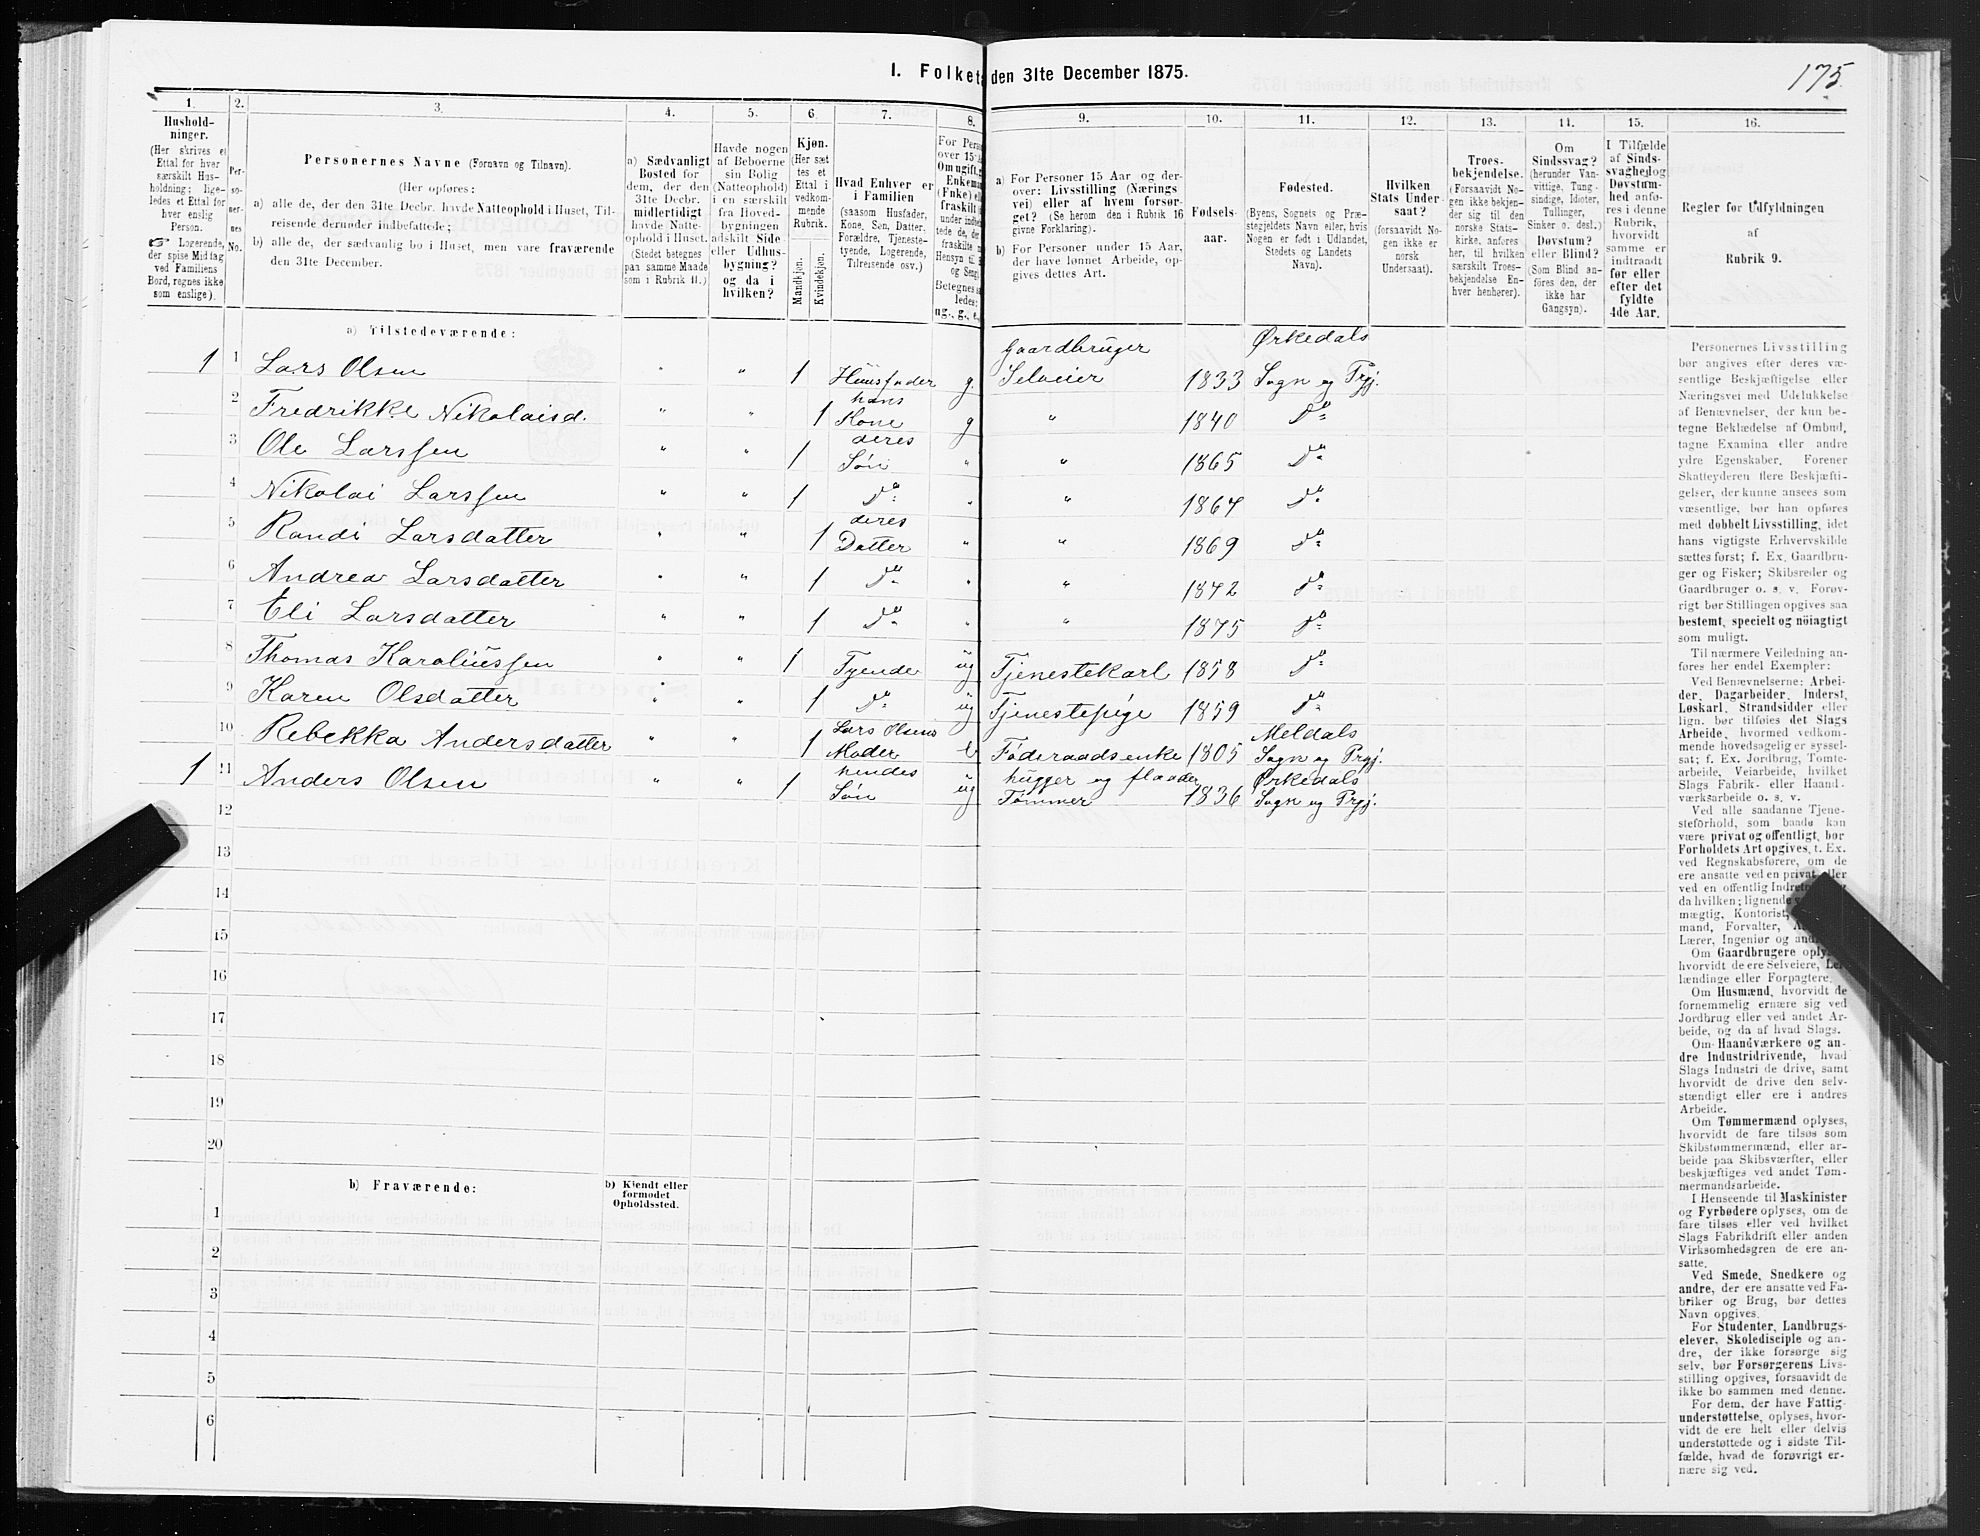 175
I. Folketæ den 31te December 1875.
1. 2. 3. 4. 5. 6. 7. 8. 9. 10. 11. 12. 13. 14. 15. 16.
Hushold-
ninger.
(Her skrives et
Ettal for hver
særskilt Hus-
holdning; lige-
ledes et Ettal for
hver enslig
Person.
Logerende,
der spise Middag
ved Familiens
Bord, regnes ikke
som enslige).
Per-
so-
ner-
nes
No.
Personernes Navne (Fornavn og Tilnavn).
(Her opføres:
a) alle de, der den 31te Decbr. havde Natteophold i Huset, Til-
reisende derunder indbefattede;
b) alle de, der sædvanlig bo i Huset, men vare fraværende
den 31te December.
a) Sædvanligt
Bosted for
dem, der den
31te Decbr.
midlertidigt
havde Natte-
ophold i Huset.
(Stedet betegnes
paa samme Maade
som i Rubrik 11.)
Havde nogen
af Beboerne
sin Bolig
(Natteophold)
i en særskilt
fra Hoved-
bygningen
adskilt Side-
eller Udhus-
bygning?
og da i
hvilken?
Kjøn.
(Her sæt-
tes et
Ettal i
vedkom-
mende
Rubrik.
Mandkjøn.
Kvindekjøn.
Hvad Enhver er
i Familien
(saasom Husfader,
Kone, Søn, Datter,
Forældre, Tjeneste-
tyende, Logerende,
Tilreisende osv.)
For Pers
over 15
Om ugift, g
Enkema
(Enke) el
fraskilt
under indbef
tede de, der
fraskilte
Hensyn til
og Seng
Betegnes s
ledes:
ug., g., e.,
a) For Personer 15 Aar og der-
over: Livsstilling (Nærings-
vei) eller af hvem forsør-
get? (Se herom den i Rubrik 16
givne Forklaring).
b) For Personer under 15 Aar,
der have lønnet Arbeide, op-
gives dettes Art.
Fødsels-
aar.
Fødested.
(Byens, Sognets og Præ-
stegjeldets Navn eller, hvis
Nogen er født i Udlandet,
Stedets og Landets
Navn).
Hvilken
Stats Under-
saat?
(forsaavidt No-
gen ikke er
norsk
Undersaat).
Troes-
bekjendelse.
(Forsaavidt No-
gen ikke bekjen-
der sig til den
norske Stats-
kirke, anføres
her, til hvilken
særskilt Troes-
bekjendelse En-
hver henhører).
Om
Sindssvag?
(herunder Van-
vittige, Tung-
sindige, Idioter,
Tullinger,
Sinker o. desl.)
Døvstum?
eller Blind?
(Som Blind an-
føres den, der
ikke har
Gangsyn).
I Tilfælde
af Sinds-
svaghed og
Døvstum-
hed anfø-
res i denne
Rubrik,
hvorvidt
samme er
indtraadt
før eller
efter det
fyldte
4de Aar.
Regler for Udfyldningen
af
Rubrik 9.
a) Tilstedeværende:
Gaardbruger Ørkedals
1 1 Lars Olsen " " 1 Huusfader g. Selveier 1833 Sogn og Prgj.
hans
2 Fredrikke Nikolaisd. " " 1 Kone g " 1840 Do
deres
3 Ole Larssen " " 1 Søn " " 1865 Do
4 Nikolai Larssen " " 1 Do " " 1867 Do
deres
5 Randi Larsdatter " " 1 Datter " " 1869 Do
6 Andrea Larsdatter " " 1 Do " " 1872 Do
7 Eli Larsdatter " " 1 Do " " 1875 Do
8 Thomas Karoliussen " " 1 Tyende ug Tjenestekarl 1858 Do
9 Karen Olsdatter " " 1 Do ug Tjenestepige 1859 Do
Lars Olsens Meldals
10 Rebekka Andersdatter " " 1 Moder e Føderaadsenke 1805 Sogn og Prgj.
hendes hugger og flaader Ørkedals
1 11 Anders Olsen " " 1 Søn ug Tømmer 1836 Sogn og Prgj.
12
13
14
15
16
17
18
19
20
b) Fraværende:
b) Kjendt eller
formodet
Opholdssted.
1
2
3
4
5
6
Personernes Livsstilling
bør angives efter deres væ-
sentlige Beskjæftigelse eller
Næringsvei med Udelukkelse
af Benævnelser, der kun be-
tegne Beklædelse af Ombud,
tagne Examina eller andre
ydre Egenskaber. Forener
Skatteyderen flere Beskjæfti-
gelser, der kunne ansees som
væsentlige, bør han opføres
med dobbelt Livsstilling, idet
hans vigtigste Erhvervskilde
sættes først; f. Ex. Gaardbru-
ger og Fisker; Skibsreder og
Gaardbruger o. s. v. Forøv-
rigt bør Stillingen opgives saa
bestemt, specielt og nöiagtigt
som muligt.
Til nærmere Veiledning an-
føres her endel Exempler:
Ved Benævnelserne: Arbei-
der, Dagarbeider, Inderst,
Løskarl, Strandsidder eller
lign. bør tilføies det Slags
Arbeide, hvormed vedkom-
mende hovedsagelig er syssel-
sat; f. Ex. Jordbrug, Tomte-
arbeide, Veiarbeide, hvilket
Slags Fabrik- eller Haand-
værksarbeide o. s. v.
Ved alle saadanne Tjene-
steforhold, som baade kan
være privat og offentligt, bør
Forholdets Art opgives, t. Ex.
ved Regnskabsførere, om de
ere ansatte ved en privat eller
ved en offentlig
da hvilken; lignende
mægtig, Kontorist,
mand, Forvalter,
Lærer, Ingeniør og
Om Gaardbrugere
hvorvidt de ere Selveiere,
lændinge eller Forpagtere.
Om Husmænd, hvorvidt de
fornemmelig ernære sig ved
Jordbrug eller ved andet Ar-
beide, og da af hvad Slags.
Om Haandværkere og an-
dre Industridrivende, hvad
Slags Industri de drive, samt
hvorvidt de drive den selv-
stændigt eller ere i andres
Arbeide.
Om Tømmermænd oplyses,
hvorvidt de fare tilsøs som
Skibstømmermænd, eller ar-
beide paa Skibsværfter, eller
beskjæftiges ved andet Tøm-
mermandsarbeide.
I Henseende til Maskinister
og Fyrbødere oplyses, om de
fare tilsøs eller ved hvilket
Slags Fabrikdrift eller anden
Virksomhedsgren de ere an-
satte.
Ved Smede, Snedkere og
andre, der ere ansatte ved Fa-
briker og Brug, bør dettes
Navn opgives.
For Studenter, Landbrugs-
elever, Skoledisciple og an-
dre, der ikke forsørge sig
selv, bør Forsørgerens Livs-
stilling opgives, forsaavidt de
ikke bo sammen med denne.
For dem, der have Fattig-
understøttelse, oplyses, hvor-
vidt de ere helt eller delvis
understøttede og i sidste Til-
fælde, hvad de forøvrigt er-
nære sig ved.